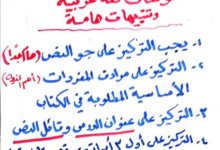 وتنبيهات هامة
١- يجب التركيز على جو النص (هام جدا)
٢- التركيز على مرادت المفردات
الأساسية المطلوبة في الكتاب
٣- التركيز على عنوان الدرس وقائل النص
٤- التركيز على أول ٣